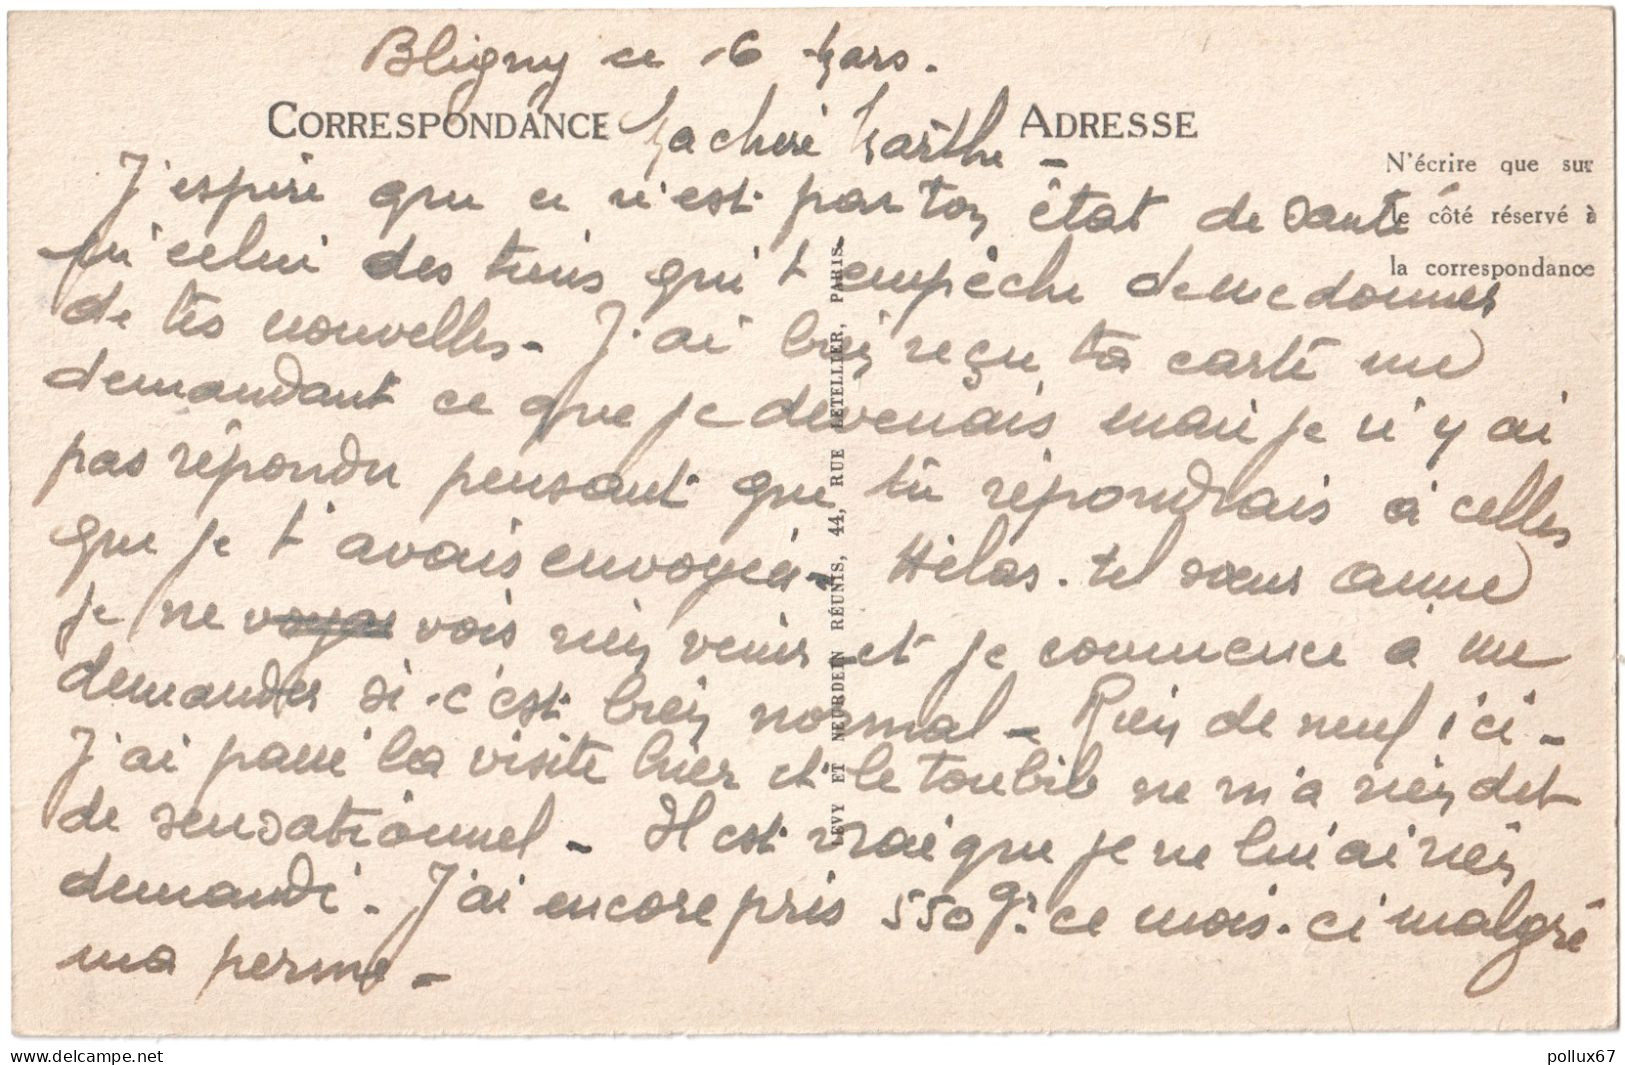 Bligny ce 16 Mars.
CORRESPONDANCE
Ma chère Marthe -
ADRESSE
N'écrire que sur
le côté réservé à
la correspondance
J'espère que ce n'est pas ton état de santé
ni celui des tiens qui t'empêche de me donner
de tes nouvelles - J'ai bien reçu ta carte me
demandant ce que je devenais mais je n'y ai
pas répondu pensant que tu répondrais à celles
que je t'avais envoyées - Hélas. tel sœur anne
je ne vois rien venir et je commence à me
demander si c'est bien normal - Rien de neuf ici -
J'ai passé la visite hier et le toubib ne m'a rien dit
de sensationnel - Il est vrai que je ne lui ai rien
demandé. J'ai encore pris 550 gr. ce mois-ci malgré
ma perme -
LEVY ET NEURDEIN RÉUNIS, 44, RUE LETELLIER, PARIS
delcampe.net
pollux67